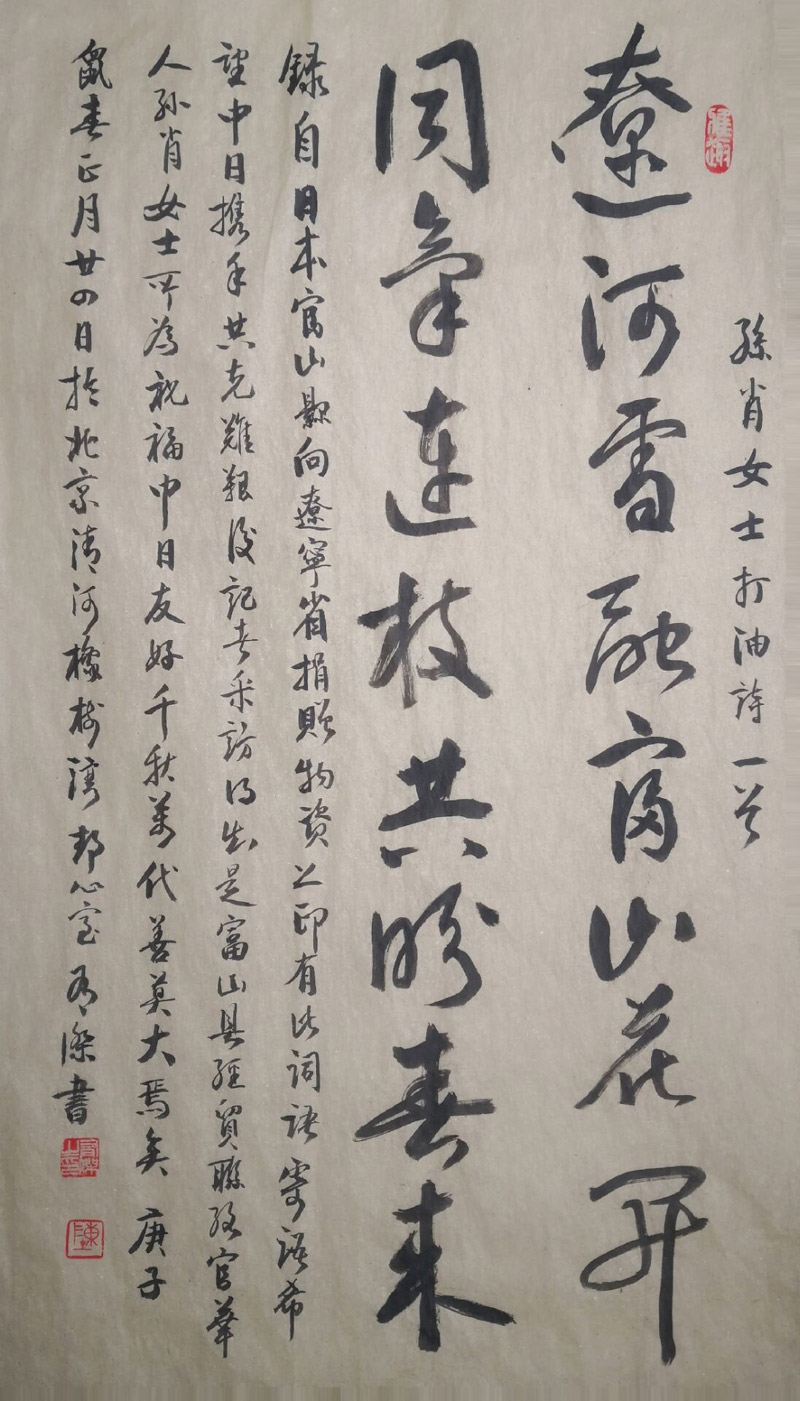 孫肖女士打油詩一首
遼河雪融富山花開
同氣連枝共盼春來
録自日本富山縣向遼寧省捐贈物資上印有此詞語寄語希
望中日携手共克難艱後記者采訪得知是富山縣經貿聯絡官華
人孙肖女士所為祝福中日友好千秋萬代善莫大焉矣 庚子
鼠春正月廿四日於北京清河橡樹湾静心室 傑書
陳